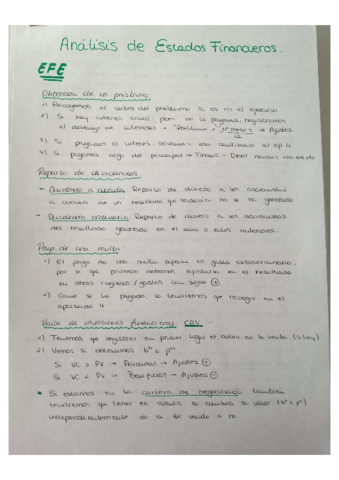 Análisis de Estados Financieros.
EFE
Obtención de un préstamo
1) Recogemos el cobro del préstamo si es en el ejercicio
2) Si hay interés anual pero no lo pagamos, registramos
el devengo de intereses = Préstamo × nº meses / 12 → Ajustes
3) Si pagamos el interés, llevamos esa cantidad al ap 4
4) Si pagamos algo del principal →
Reparto de dividendos
- Dividendo a cuenta: Reparto de dinero a los accionistas
a cuenta de un resultado que todavía no se ha generado
- Dividendo ordinario: Reparto de dinero a los accionistas
del resultado generado en el año o años anteriores.
Pago de una multa
1) El pago de una multa supone un gasto extraordinario,
por lo que primero debemos ajustarlo en el resultado
en otros ingresos/gastos con signo +
2) Como se ha pagado, lo tendremos que recoger en el
apartado 4
Venta de inversiones financieras CDV
1) Tenemos que registrar en primer lugar el cobro de la venta (si hay)
2) Vemos si obtenemos bº o pª
Si VC > PV → Pérdidas → Ajustes +
Si VC < PV → Beneficios → Ajustes -
Si estamos en la cartera de negociación también
tendremos que tener en cuenta si cambia su valor (bº o pª)
independientemente de si se vende o no.